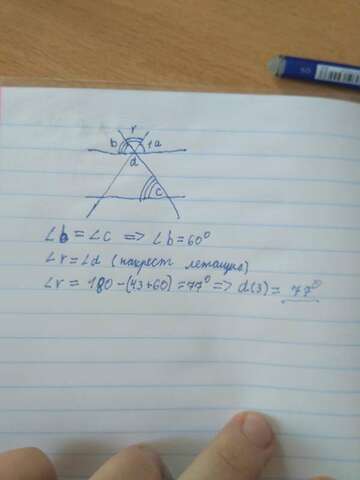 r
b 1 a
d
c
∠b = ∠c => ∠b = 60°
∠r = ∠d (накрест лежащие)
∠r = 180 - (43+60) = 77° => d(3) = 77°